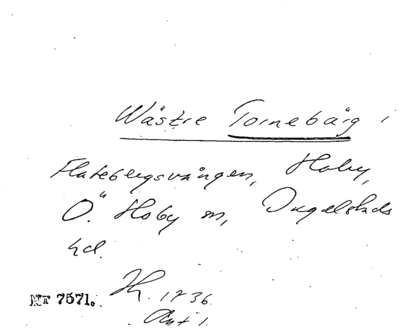 Wästre Tornebärg i
Flatebergsvången, Hoby,
Ö. Hoby sn, Ingelstads
hd.
Nr 7571. Hk. 1736
Akt 1.